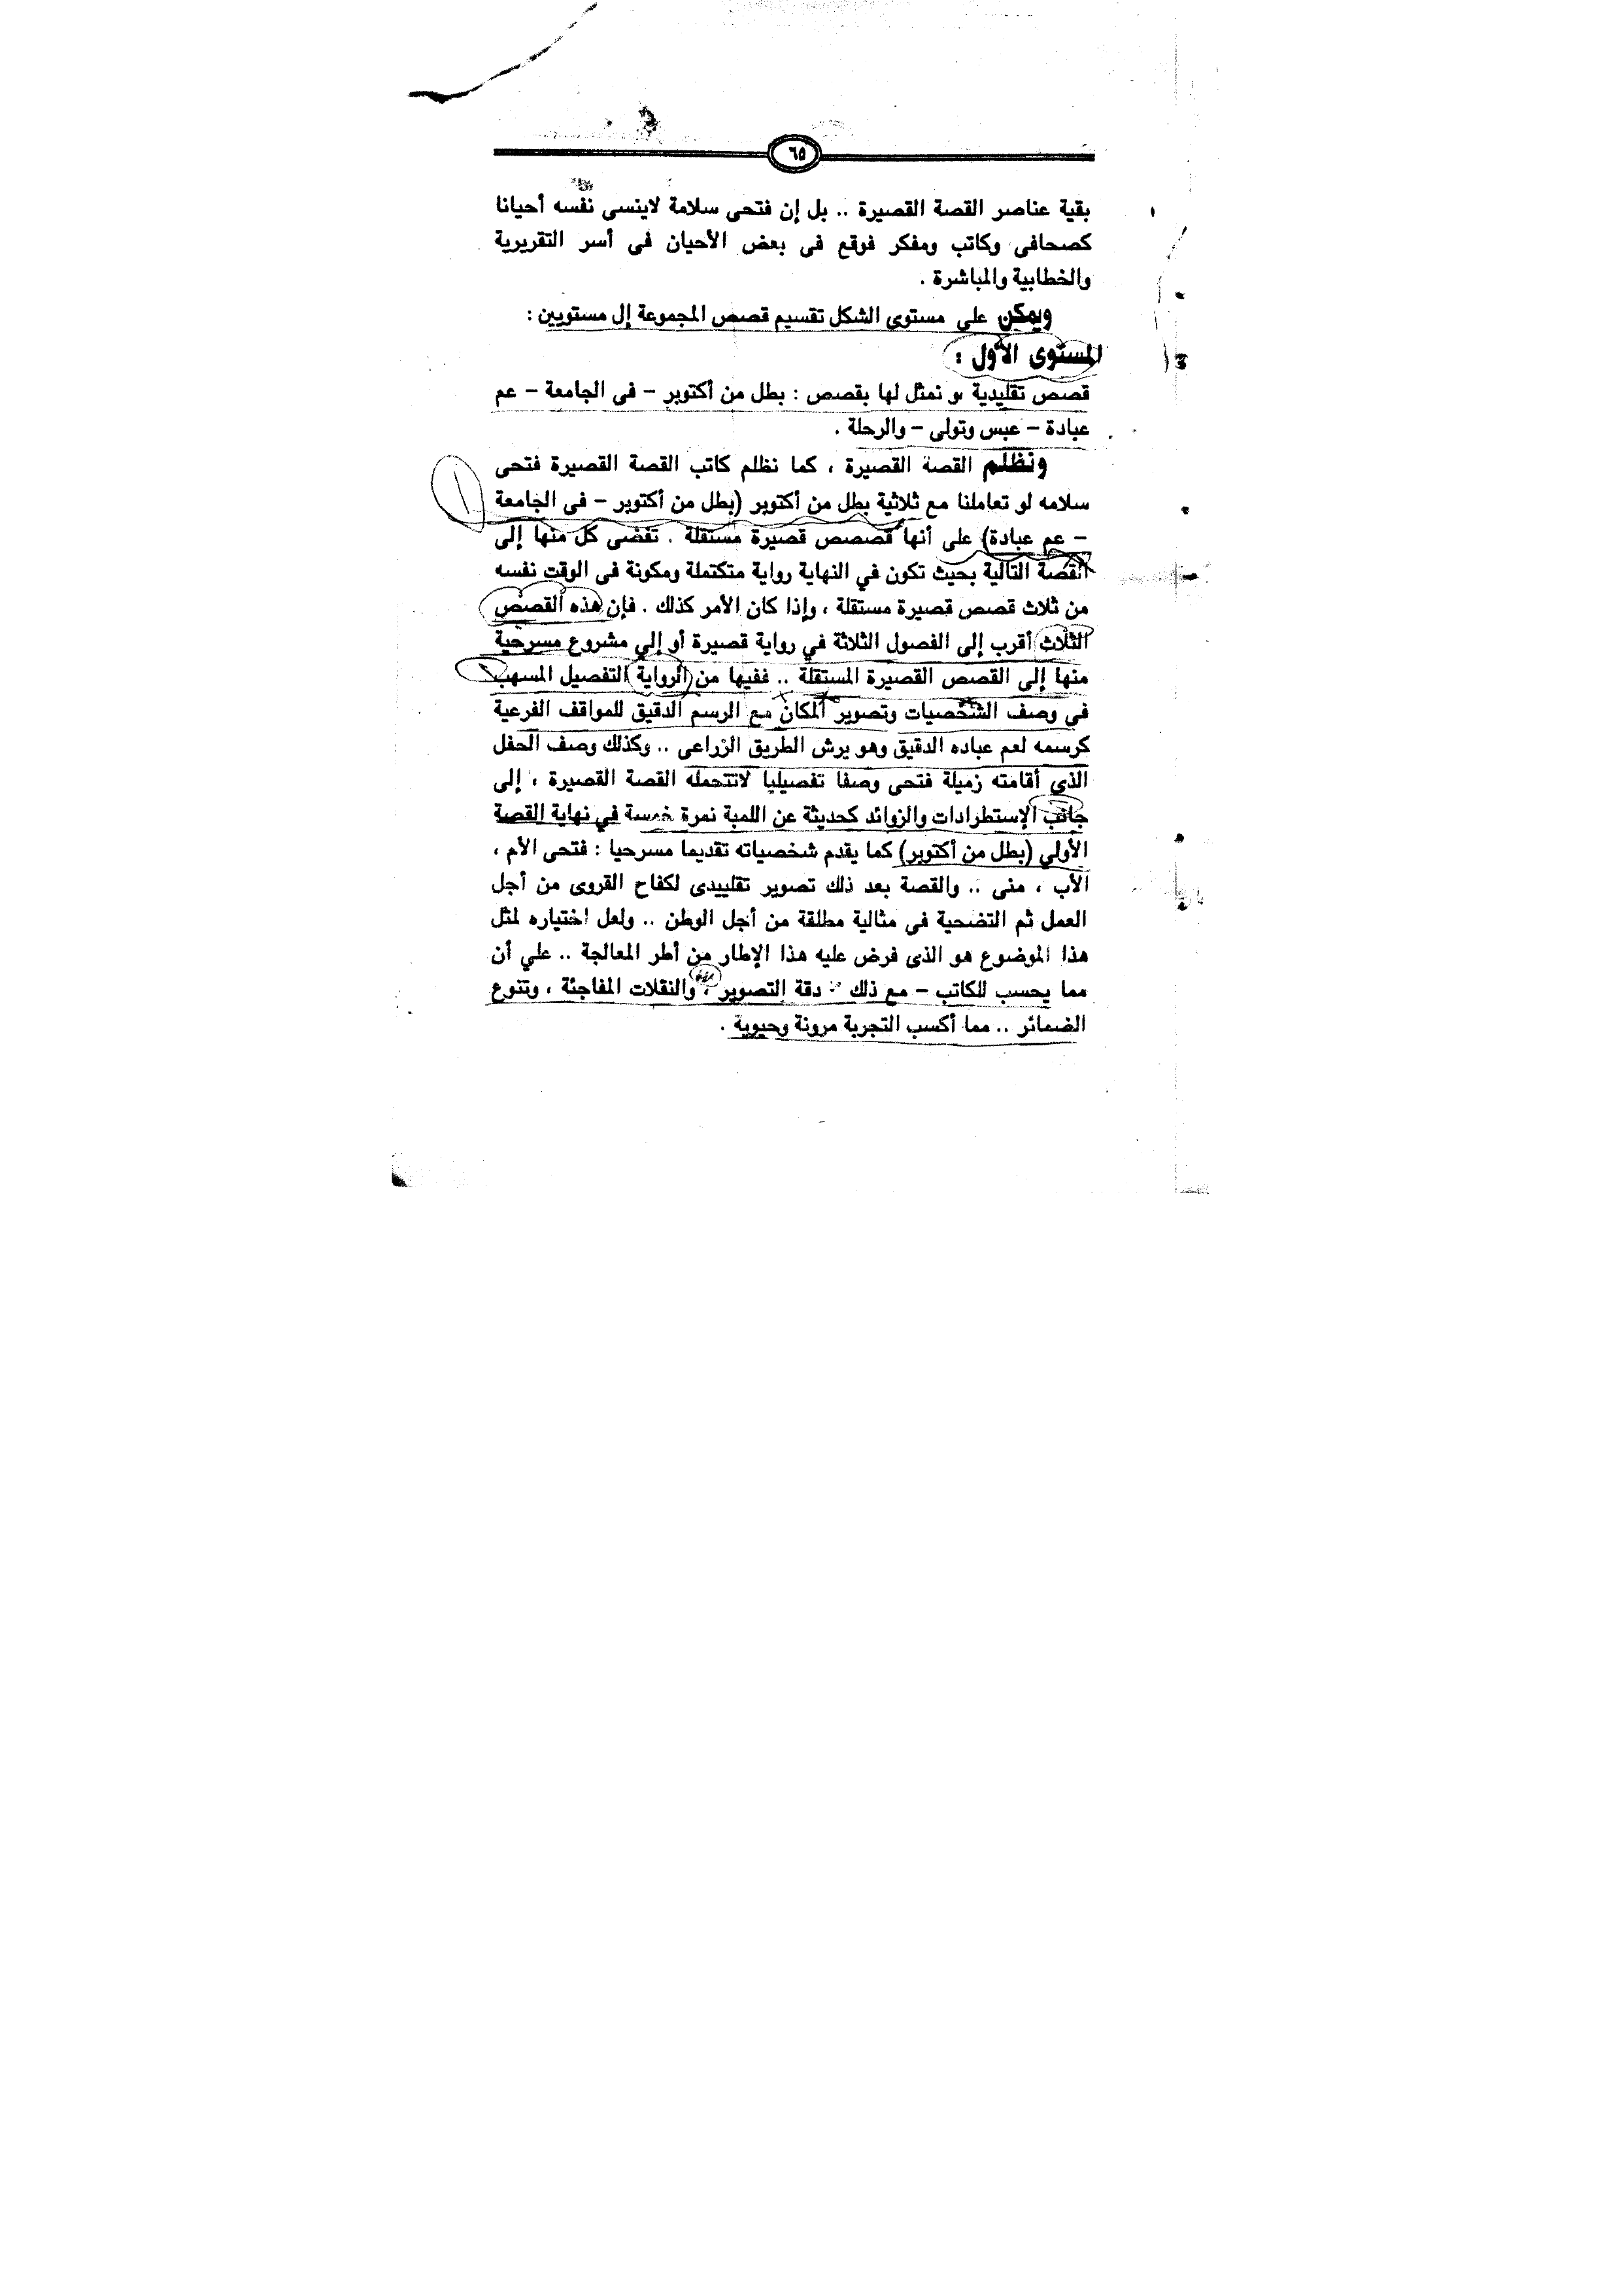 ٦٥
بقية عناصر القصة القصيرة .. بل إن فتحى سلامة لاينسى نفسه أحيانا
كصحافى وكاتب ومفكر فوقع فى بعض الأحيان فى أسر التقريرية
والخطابية والمباشرة .
ويمكن على مستوى الشكل تقسيم قصص المجموعة إل مستويين :
المستوى الأول :
قصص تقليدية نمثل لها بقصص : بطل من أكتوبر – فى الجامعة – عم
عبادة – عبس وتولى – والرحلة .
ونظلم القصة القصيرة ، كما نظلم كاتب القصة القصيرة فتحى
سلامه لو تعاملنا مع ثلاثية بطل من أكتوبر (بطل من أكتوبر – فى الجامعة
– عم عبادة) على أنها قصصص قصيرة مستقلة . تفضى كل منها إلى
القصة التالية بحيث تكون في النهاية رواية متكتملة ومكونة فى الوقت نفسه
من ثلاث قصص قصيرة مستقلة ، وإذا كان الأمر كذلك . فإن هذه القصص
الثلاث أقرب إلى الفصول الثلاثة في رواية قصيرة أو إلي مشروع مسرحية
منها إلى القصص القصيرة المستقلة .. ففيها من الرواية التفصيل المسهب
في وصف الشخصيات وتصوير المكان مع الرسم الدقيق للمواقف الفرعية
كرسمه لعم عباده الدقيق وهو يرش الطريق الزراعى .. وكذلك وصف الحفل
الذي أقامته زميلة فتحى وصفا تفصيليا لاتتحمله القصة القصيرة ، إلى
جانب الإستطرادات والزوائد كحديثة عن اللمبة نمرة خمسة في نهاية القصة
الأولي (بطل من أكتوبر) كما يقدم شخصياته تقديما مسرحيا : فتحى الأم ،
الأب ، منى .. والقصة بعد ذلك تصوير تقلييدى لكفاح القروى من أجل
العمل ثم التضحية فى مثالية مطلقة من أجل الوطن .. ولعل اختياره لمثل
هذا الموضوع هو الذى فرض عليه هذا الإطار من أطر المعالجة .. علي أن
مما يحسب للكاتب – مع ذلك – دقة التصوير ، والنقلات المفاجئة ، وتنوع
الضمائر .. مما أكسب التجربة مرونة وحيوية .